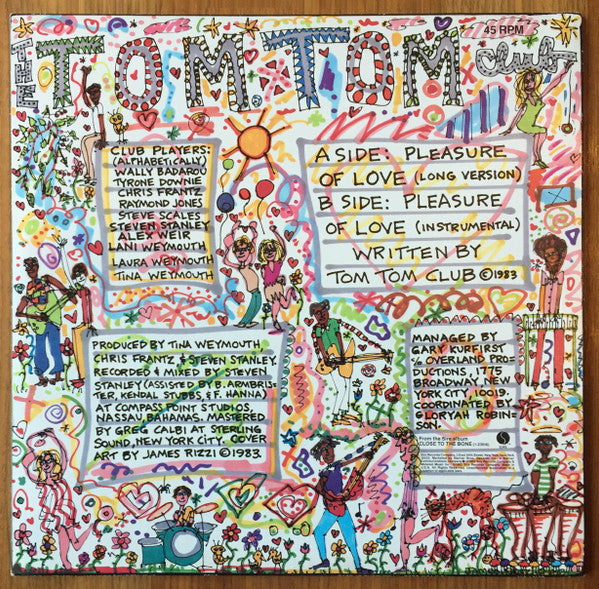 THE TOM TOM Club
45 RPM
CLUB PLAYERS:
(ALPHABETICALLY)
WALLY BADAROU
TYRONE DOWNIE
CHRIS FRANTZ
RAYMOND JONES
STEVE SCALES
STEVEN STANLEY
ALEX WEIR
LANI WEYMOUTH
LAURA WEYMOUTH
TINA WEYMOUTH
A SIDE: PLEASURE
OF LOVE (LONG VERSION)
B SIDE: PLEASURE
OF LOVE (INSTRUMENTAL)
WRITTEN BY
TOM TOM CLUB ©1983
PRODUCED BY TINA WEYMOUTH,
CHRIS FRANTZ & STEVEN STANLEY.
RECORDED & MIXED BY STEVEN
STANLEY (ASSISTED BY B. ARMBRIS=
TER, KENDAL STUBBS, & F. HANNA)
AT COMPASS POINT STUDIOS,
NASSAU, BAHAMAS. MASTERED
BY GREG CALBI AT STERLING
SOUND, NEW YORK CITY. COVER
ART BY JAMES RIZZI ©1983.
MANAGED BY
GARY KURFIRST
c/o OVERLAND PRO=
DUCTIONS, 1775
BROADWAY, NEW
YORK CITY, 10019.
COORDINATED BY
GLORYAH ROBIN=
SON.
From the Sire album
CLOSE TO THE BONE